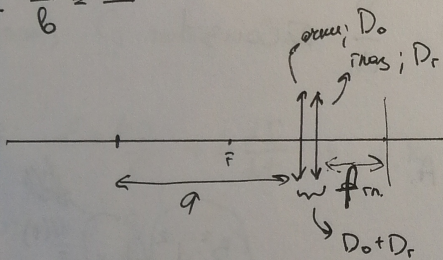 б
очки; D₀
глаз; Dг
F
a
fгл.
D₀ + Dг